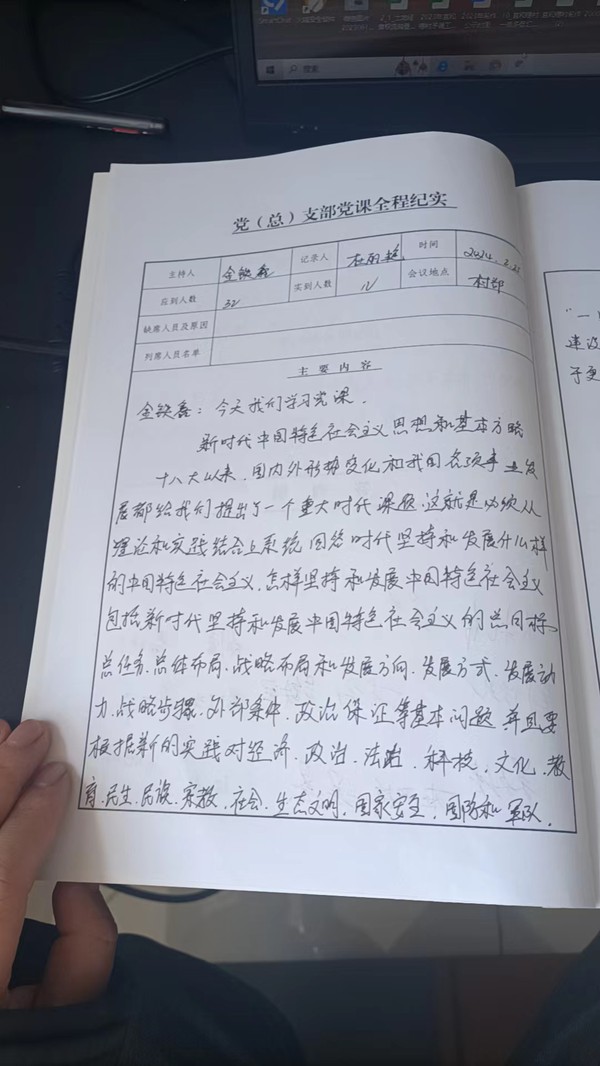 搜索
党（总）支部党课全程纪实
主持人 金铁鑫 记录人 时间 2024.2.2
应到人数 32 实到人数 12 会议地点 村部
缺席人员及原因
列席人员名单
主要内容
金铁鑫：今天我们学习党课.
新时代中国特色社会主义思想和基本方略
十八大以来，国内外形势变化和我国各项事业发
展都给我们提出了一个重大时代课题，这就是必须从
理论和实践结合上系统回答时代坚持和发展什么样
的中国特色社会主义，怎样坚持和发展中国特色社会主义
包括新时代坚持和发展中国特色社会主义的总目标、
总任务、总体布局、战略布局和发展方向、发展方式、发展动
力、战略步骤、外部条件、政治保证等基本问题 并且要
根据新的实践对经济、政治、法治、科技、文化、教
育、民生、民族、宗教、社会、生态文明、国家安全、国防和军队、
"一
建设
于更